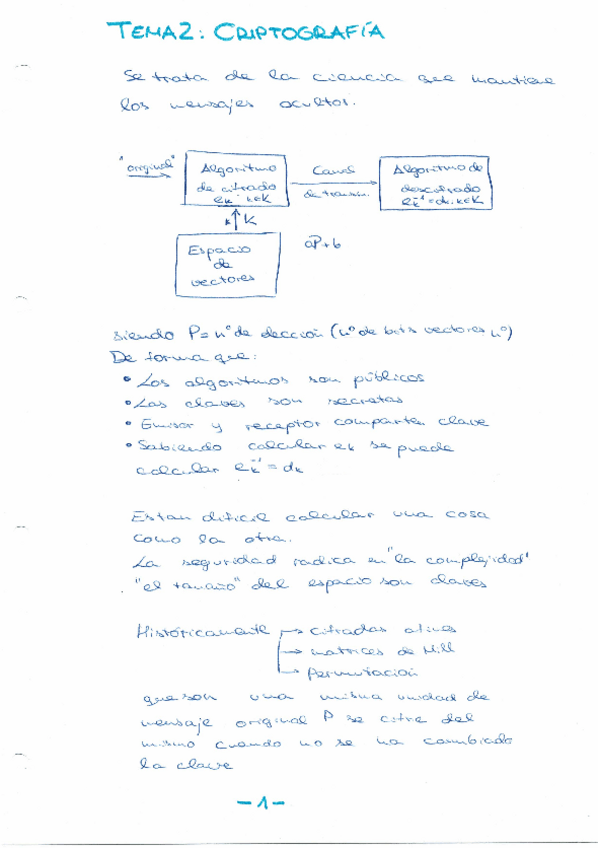 TEMA 2: CRIPTOGRAFÍA
Se trata de la ciencia que mantiene
los mensajes ocultos.
"original"
Algoritmo
de cifrado
eₖ k∈K
Canal
de transm.
Algoritmo de
descifrado
eₖ⁻¹=dₖ k∈K
k K
Espacio
de
vectores
aP+b
siendo P= nº de elección (nº de bits vectores nº)
De forma que:
• Los algoritmos son públicos
• Las claves son secretas
• Emisor y receptor comparten clave
• Sabiendo calcular eₖ se puede
calcular eₖ⁻¹ = dₖ
Es tan dificil calcular una cosa
como la otra.
La seguridad radica en "la complejidad"
"el tamaño" del espacio son claves
Históricamente → cifrados afines
→ matrices de Hill
→ Permutación
que son una misma unidad de
mensaje original P se cifre del
mismo cuando no se ha cambiado
la clave
- 1 -